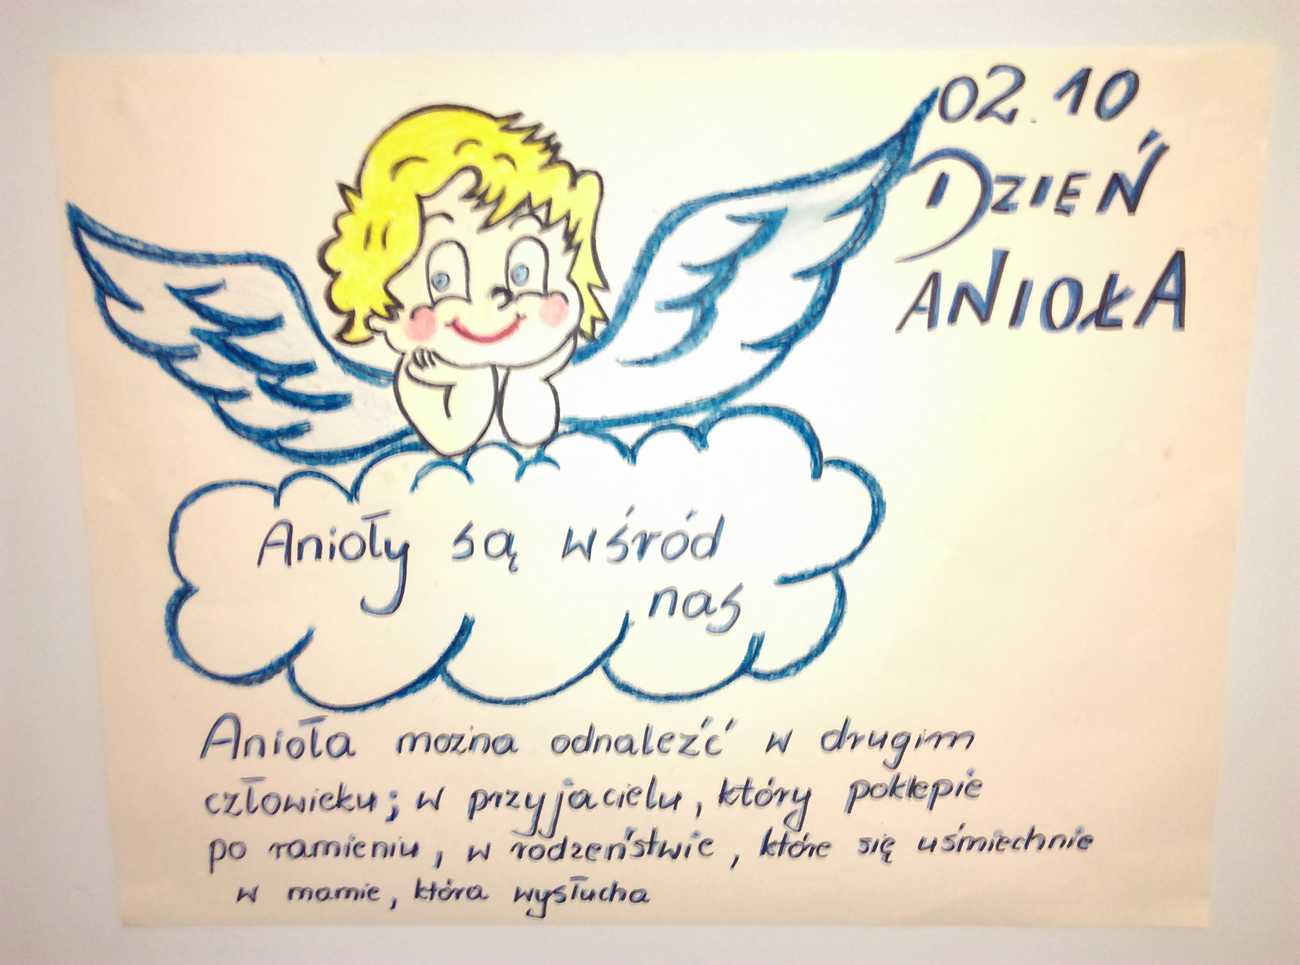 02.10
DZIEŃ
ANIOŁA
Anioły są wśród
nas
Anioła można odnaleźć w drugim
człowieku; w przyjacielu, który poklepie
po ramieniu, w rodzeństwie, które się uśmiechnie
w mamie, która wysłucha